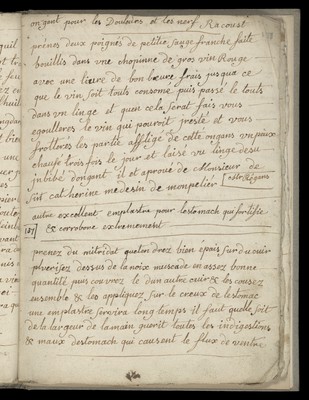 ongant pour les Douleurs et les nerf Racourt
prenes deux poignés de petitte sauge franche faite
bouillir dans vne chopinne de gros vin Rouge
avec une lieure de bon beure frais jusqua ce
que le vin soit touts consomé puis passé le touts
dans vn linge et quen cela serat fais vous
egoutteres le vin qui pouroit resté et vous
frotteres les partie affligé de cette ongans vn peux
chaufé trois fois le jour et laisé vn linge desu
jnbibé dongant il et aprouvé de Monsieur de
sit catherine medesin de monpelier
autre excellent emplastre pour lestomach qui fortifie
187 & corrobore extremement
prenez du mitridat quelon drez bien epais sur du cuir
pluerisez dessus de la noix muscade en assez bonne
quantité puis couvrez le dun autre cuir & les cousez
ensemble & les appliquez sur le creux de lestomac
une emplastre servira long temps il faut quelle soit
de la largeur de la main guerit toutes les indigestions
& maux destomach qui causent le flux de ventre